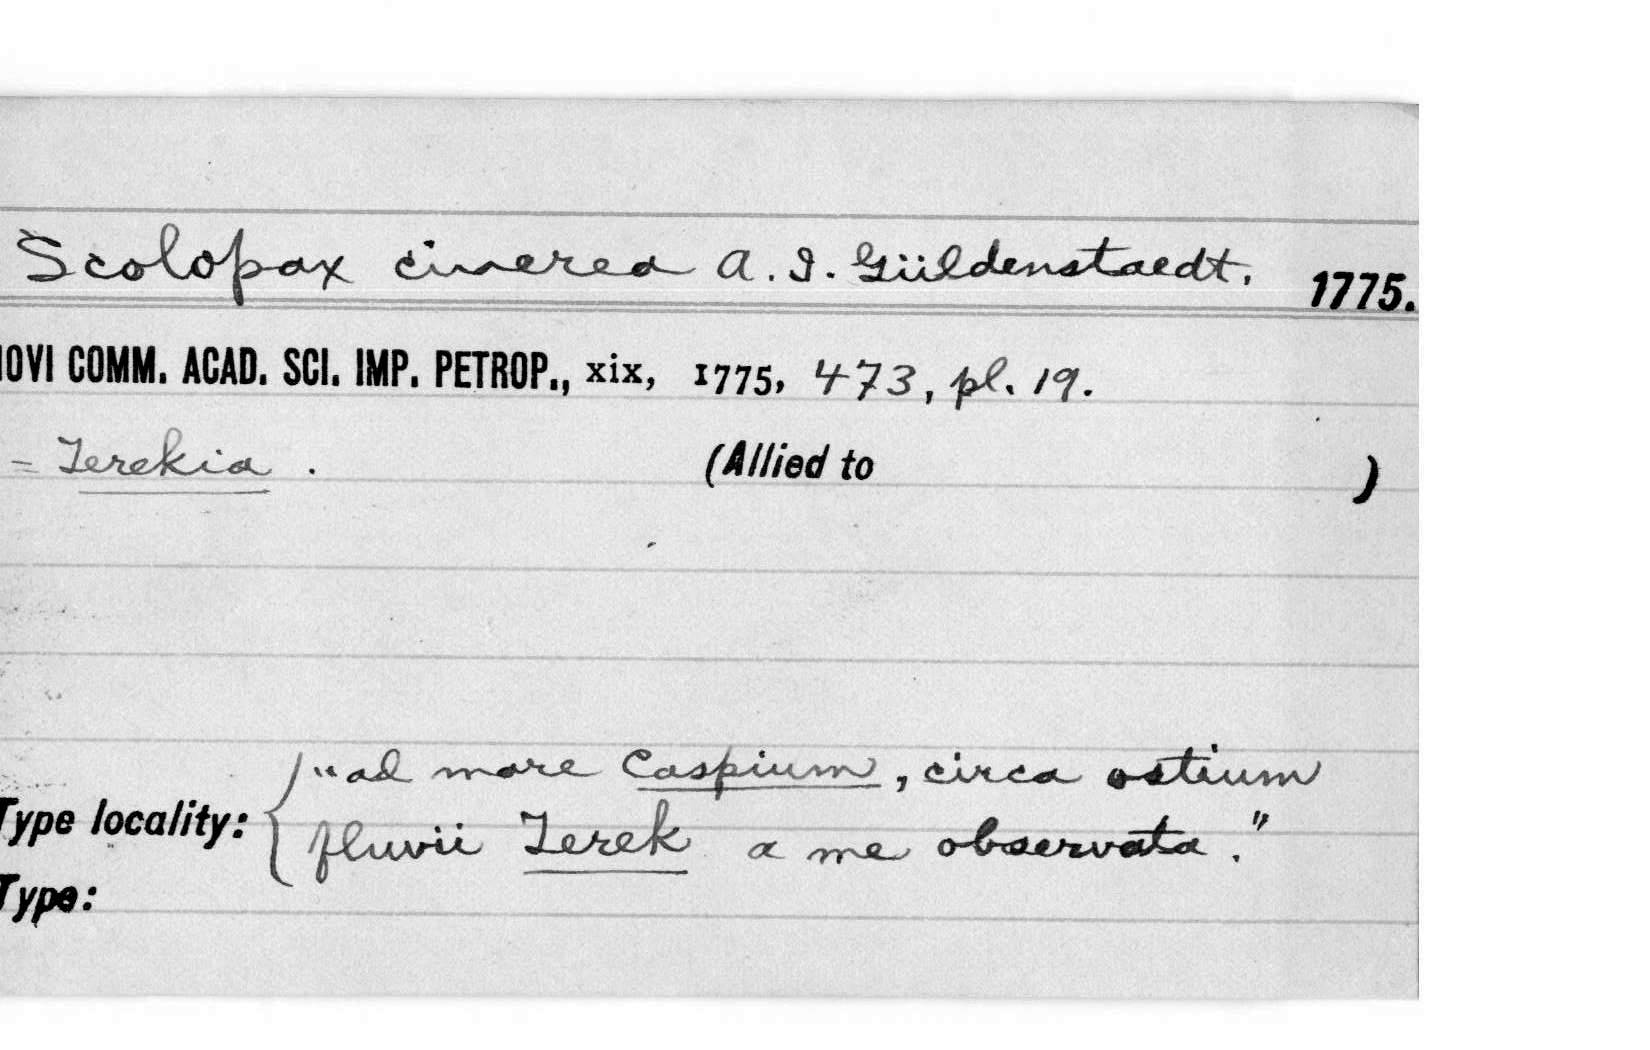 Scolopax cinerea A. I. Güldenstaedt. 1775.
NOVI COMM. ACAD. SCI. IMP. PETROP., xix, 1775, 473, pl. 19.
= Terekia. (Allied to )
"ad mare Caspium, circa ostium
Type locality: { fluvii Terek a me observata."
Type: